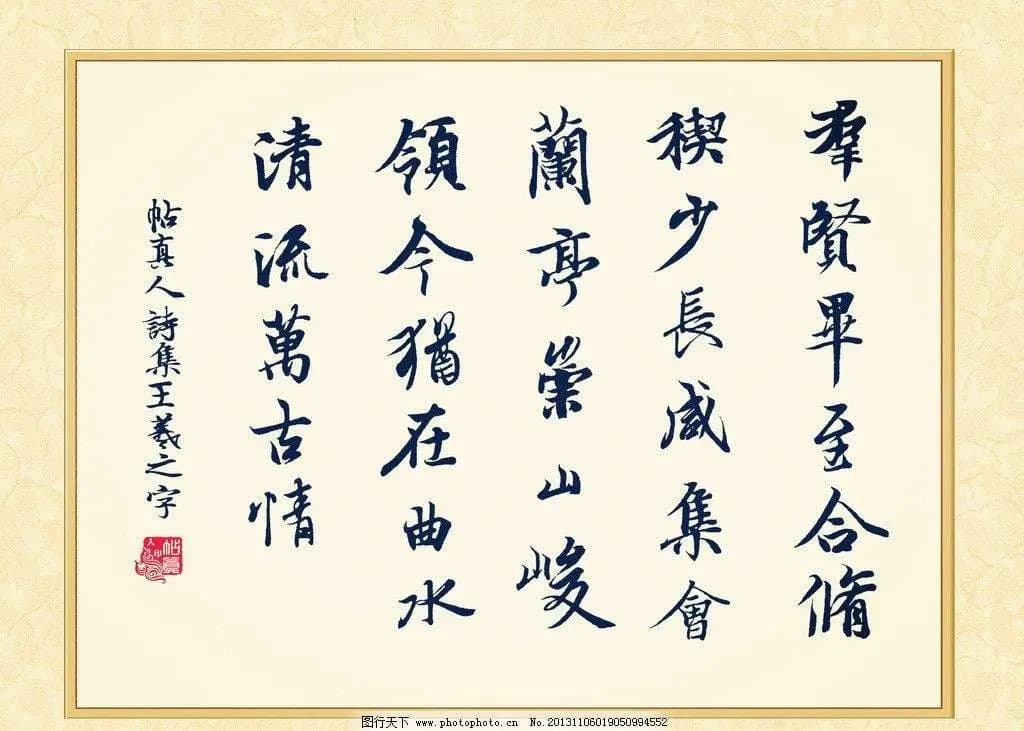 羣賢畢至合脩
稧少長咸集會
蘭亭崇山峻
領今猶在曲水
清流萬古情
帖真人詩集王羲之字
图行天下 www.photophoto.cn No.20131106019050994552